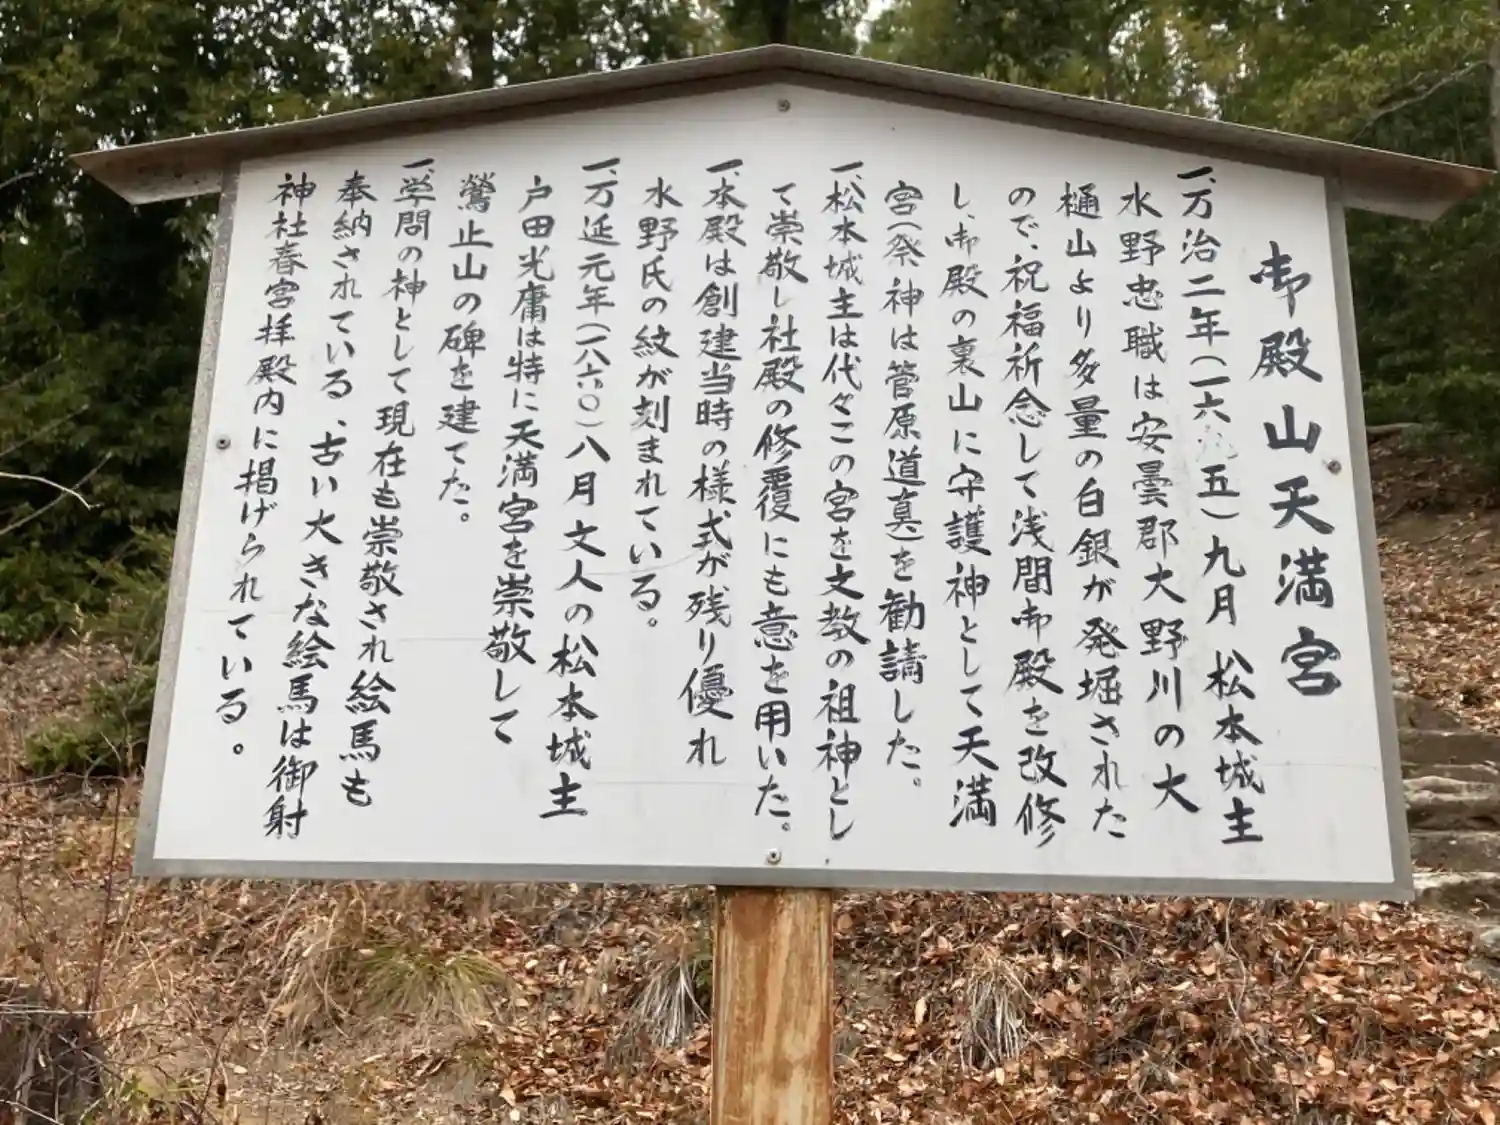 御殿山天満宮
一、万治二年(一六 五)九月 松本城主
水野忠職は安曇郡大野川の大
樋山より多量の白銀が発掘された
ので、祝福祈念して浅間御殿を改修
し、御殿の裏山に守護神として天満
宮(祭神は管原道真)を勧請した。
一、松本城主は代々この宮を文教の祖神とし
て崇敬し社殿の修覆にも意を用いた。
一、本殿は創建当時の様式が残り優れ
水野氏の紋が刻まれている。
一、万延元年(一八六〇)八月文人の松本城主
戸田光庸は特に天満宮を崇敬して
鶯止山の碑を建てた。
一、学問の神として現在も崇敬され絵馬も
奉納されている、古い大きな絵馬は御射
神社春宮拝殿内に掲げられている。